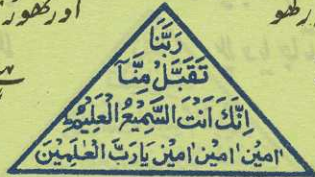 اور کھو
رَبَّنَا
تَقَبَّلْ مِنَّا
اِنَّكَ اَنْتَ السَّمِيْعُ الْعَلِيْمُ ط
اٰمین اٰمین اٰمین یَارَبَّ الْعٰلَمِیْنَ